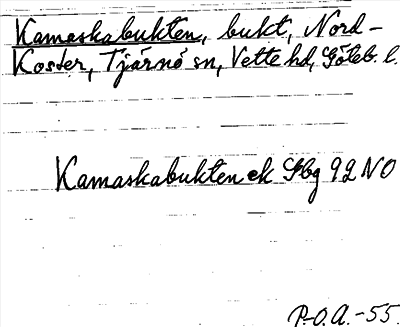 Kamaskabukten, bukt, Nord-
Koster, Tjärnö sn, Vette hd, Göteb. l.
Kamaskabukten ek Gbg 92 NO
P.-O.A.-55.